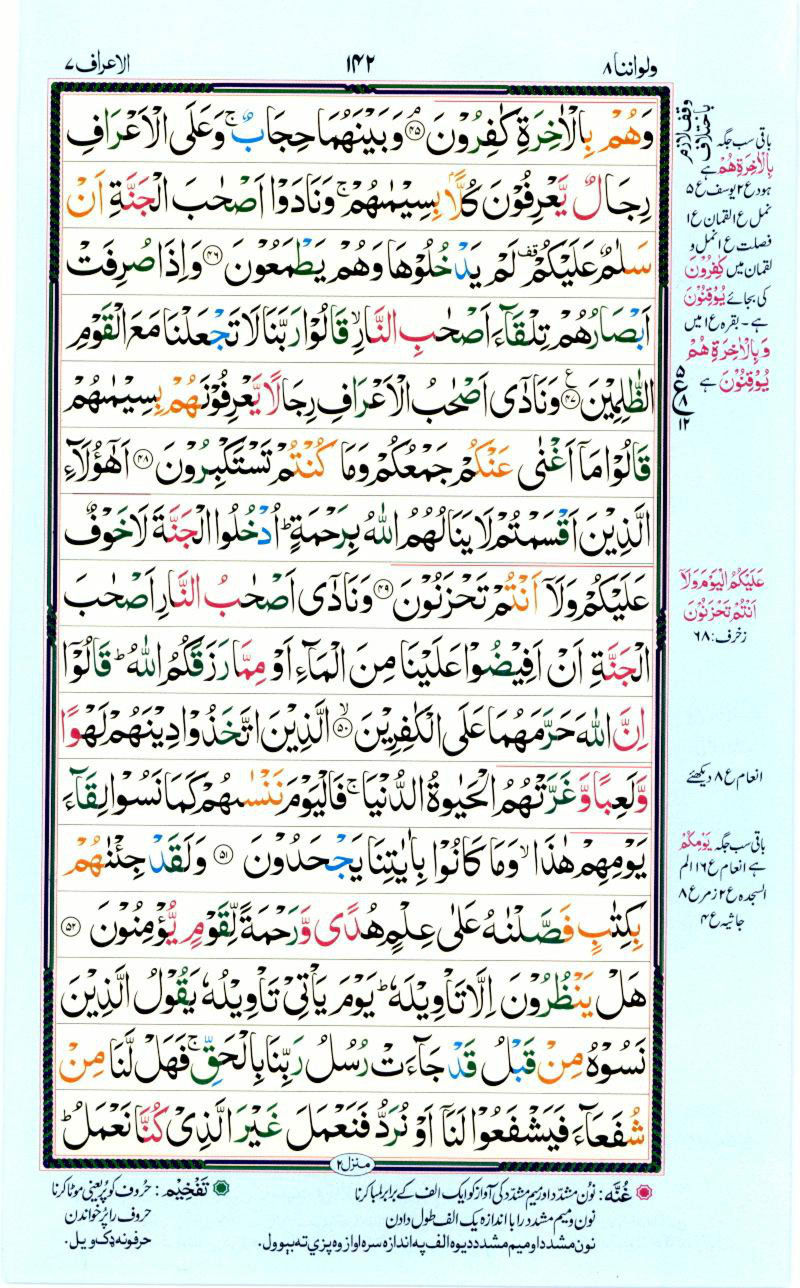 ولواننا ۸
۱۴۲
الاعراف ۷
وَهُمْ بِالْاٰخِرَةِ كٰفِرُوْنَ ۘ۝۴۵ وَبَيْنَهُمَا حِجَابٌ ۚ وَعَلَى الْاَعْرَافِ
رِجَالٌ يَّعْرِفُوْنَ كُلًّاۢ بِسِيْمٰىهُمْ ۚ وَنَادَوْا اَصْحٰبَ الْجَنَّةِ اَنْ
سَلٰمٌ عَلَيْكُمْ ۟ لَمْ يَدْخُلُوْهَا وَهُمْ يَطْمَعُوْنَ ۝۴۶ وَاِذَا صُرِفَتْ
اَبْصَارُهُمْ تِلْقَآءَ اَصْحٰبِ النَّارِ ۙ قَالُوْا رَبَّنَا لَا تَجْعَلْنَا مَعَ الْقَوْمِ
الظّٰلِمِيْنَ ۝۴۷ وَنَادٰٓى اَصْحٰبُ الْاَعْرَافِ رِجَالًا يَّعْرِفُوْنَهُمْ بِسِيْمٰىهُمْ
قَالُوْا مَاۤ اَغْنٰى عَنْكُمْ جَمْعُكُمْ وَمَا كُنْتُمْ تَسْتَكْبِرُوْنَ ۝۴۸ اَهٰٓؤُلَآءِ
الَّذِيْنَ اَقْسَمْتُمْ لَا يَنَالُهُمُ اللّٰهُ بِرَحْمَةٍ ؕ اُدْخُلُوا الْجَنَّةَ لَا خَوْفٌ
عَلَيْكُمْ وَلَاۤ اَنْتُمْ تَحْزَنُوْنَ ۝۴۹ وَنَادٰٓى اَصْحٰبُ النَّارِ اَصْحٰبَ
الْجَنَّةِ اَنْ اَفِيْضُوْا عَلَيْنَا مِنَ الْمَآءِ اَوْ مِمَّا رَزَقَكُمُ اللّٰهُ ؕ قَالُوْۤا
اِنَّ اللّٰهَ حَرَّمَهُمَا عَلَى الْكٰفِرِيْنَ ۙ۝۵۰ الَّذِيْنَ اتَّخَذُوْا دِيْنَهُمْ لَهْوًا
وَّلَعِبًا وَّغَرَّتْهُمُ الْحَيٰوةُ الدُّنْيَا ۚ فَالْيَوْمَ نَنْسٰىهُمْ كَمَا نَسُوْا لِقَآءَ
يَوْمِهِمْ هٰذَا ۙ وَمَا كَانُوْا بِاٰيٰتِنَا يَجْحَدُوْنَ ۝۵۱ وَلَقَدْ جِئْنٰهُمْ
بِكِتٰبٍ فَصَّلْنٰهُ عَلٰى عِلْمٍ هُدًى وَّرَحْمَةً لِّقَوْمٍ يُّؤْمِنُوْنَ ۝۵۲
هَلْ يَنْظُرُوْنَ اِلَّا تَاْوِيْلَهٗ ؕ يَوْمَ يَاْتِيْ تَاْوِيْلُهٗ يَقُوْلُ الَّذِيْنَ
نَسُوْهُ مِنْ قَبْلُ قَدْ جَآءَتْ رُسُلُ رَبِّنَا بِالْحَقِّ ۚ فَهَلْ لَّنَا مِنْ
شُفَعَآءَ فَيَشْفَعُوْا لَنَاۤ اَوْ نُرَدُّ فَنَعْمَلَ غَيْرَ الَّذِيْ كُنَّا نَعْمَلُ ؕ
منزل ۲
وقف لازم
باختلاف
باقی سب جگہ
بِالْاٰخِرَةِ هُمْ ہے
ہود ع ۲ یوسف ع ۵
نمل ع ۱ لقمان ع ۱
فصلت ع ۱ نمل و
لقمان میں كٰفِرُوْنَ
کی بجائے يُوْقِنُوْنَ
ہے - بقرہ ع ۱ میں
وَبِالْاٰخِرَةِ هُمْ
يُوْقِنُوْنَ ہے
۵
ع
۸
۱۲
عَلَيْكُمُ الْيَوْمَ وَلَاۤ
اَنْتُمْ تَحْزَنُوْنَ
زخرف: ۶۸
انعام ع ۸ دیکھئے
باقی سب جگہ يَوْمِكُمْ
ہے انعام ع ۱۶ الم
السجدہ ع ۲ زمر ع ۸
جاثیہ ع ۴
غُنَّه: نون مشدّد اور میم مشدّد کی آواز کو ایک الف کے برابر لمبا کرنا
نون و میم مشدد را با اندازہ یک الف طول دادن
نون مشدد او میم مشدد د یوہ الف په اندازہ سره اواز وه پزي ته بېوول.
تَفْخِيْم: حروف کو پُر یعنی موٹا کرنا
حروف را پُر خواندن
حرفونه ډک ویل.